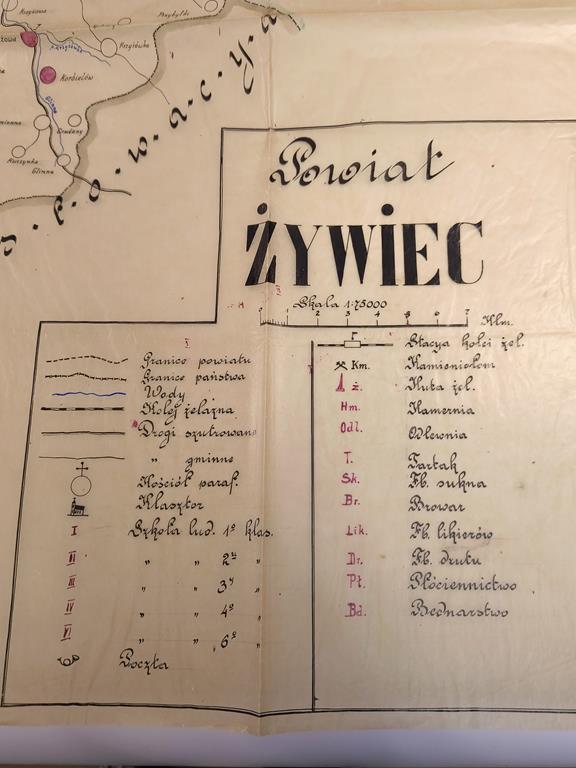 Krzyżowa
Przybyłki
Krzyżówka
Korbielów
Glinna
Studeny
Kurczynka
Glinna
o.w.a.c.y.a
Powiat
ŻYWIEC
Skala 1:75000
1 2 3 4 5 6 7 Klm.
Granice powiatu
Granice państwa
Wody
Kolej żelazna
Drogi szutrowane
„ gminne
Kościół paraf.
Klasztor
I Szkoła lud. 1º klas.
II „ „ 2u „
III „ „ 3y „
IV „ „ 4º „
VI „ „ 6º „
Poczta
Stacya kolei żel.
Km. Kamieniołom
ż. Huta żel.
Hm. Hamernia
Odl. Odlewnia
T. Tartak
Sk. Fb. sukna
Br. Browar
Lik. Fb. likierów
Dr. Fb. drutu
Pł. Płóciennictwo
Bd. Bednarstwo